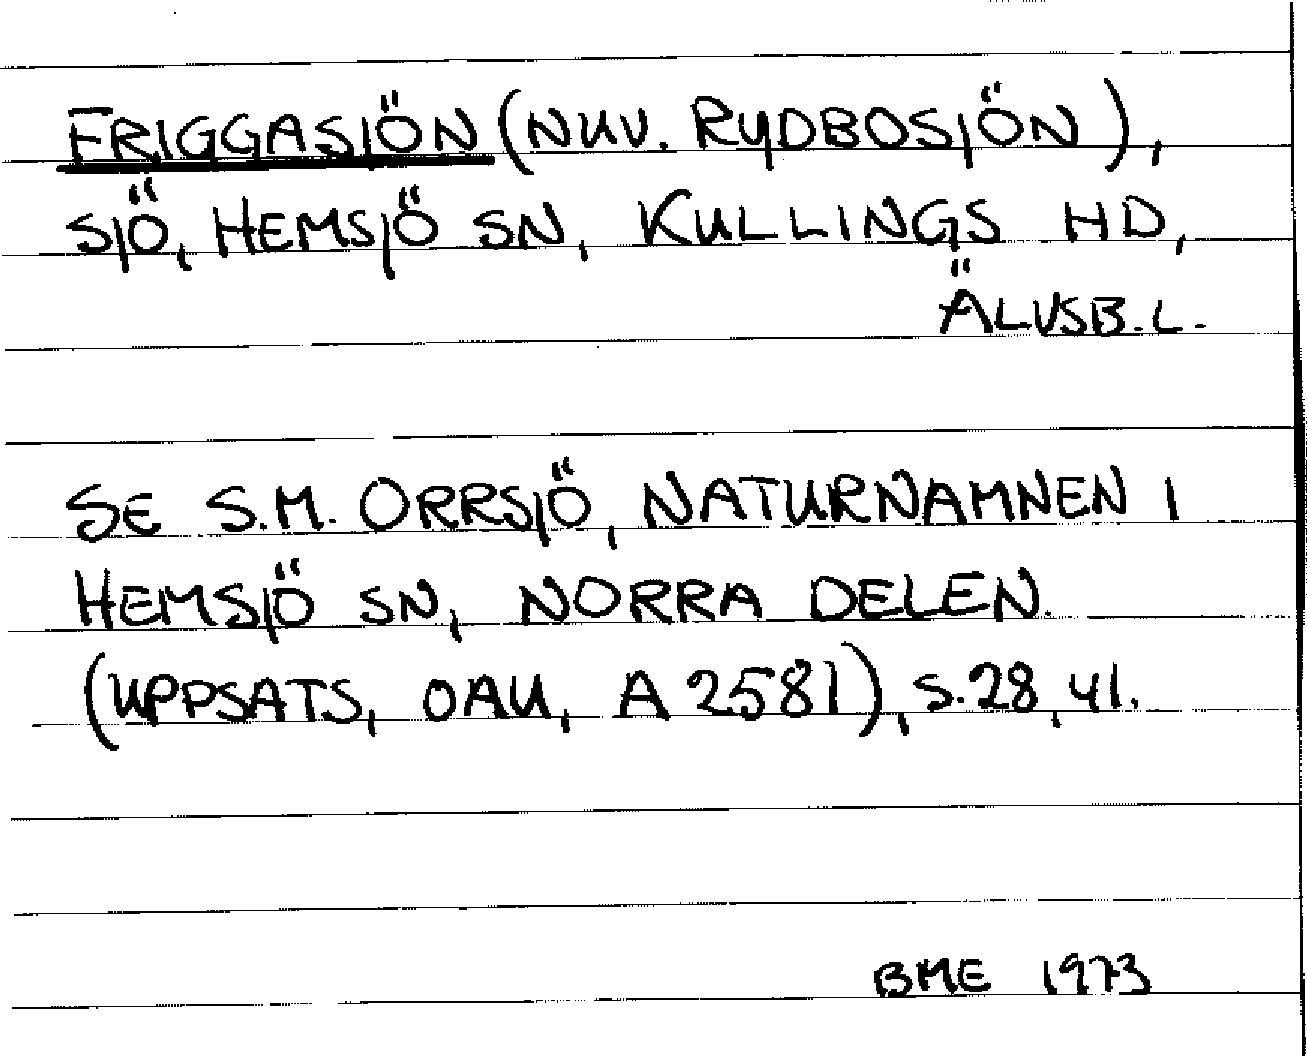 FRIGGASJÖN (NUV. RYDBOSJÖN),
SJÖ, HEMSJÖ SN, KULLINGS HD,
ÄLVSB.L.
SE S.M. ORRSJÖ, NATURNAMNEN I
HEMSJÖ SN, NORRA DELEN.
(UPPSATS, OAU, A 2581), S. 28, 41.
BME 1973